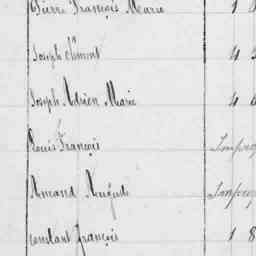 Pierre François Marie 1 8
Joseph Clément 4
Joseph Adrien Marie 4
Louis François Impro
Amand Auguste Impro
Constant François 1 8